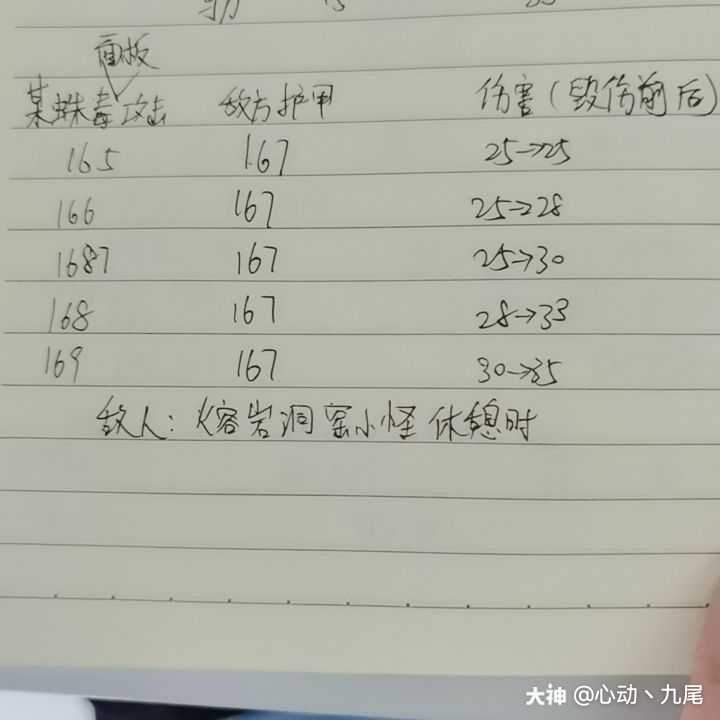 面板
某蛛毒攻击 敌方护甲 伤害(毁伤前后)
165 167 25→25
166 167 25→28
1687 167 25→30
168 167 28→33
169 167 30→35
敌人: 熔岩洞窑小怪休憩时
大神 @心动丶九尾